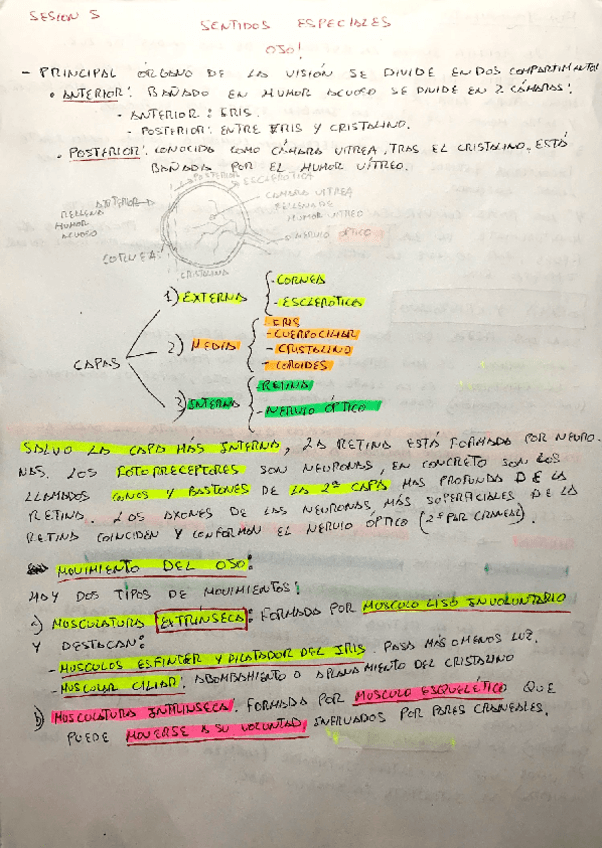 SESION 5
SENTIDOS ESPECIALES
OJO!
- PRINCIPAL ÓRGANO DE LA VISIÓN SE DIVIDE EN DOS COMPARTIMENTOS
• ANTERIOR: BAÑADO EN HUMOR ACUOSO SE DIVIDE EN 2 CÁMARAS:
- ANTERIOR: IRIS.
- POSTERIOR: ENTRE IRIS Y CRISTALINO.
• POSTERIOR: CONOCIDA COMO CÁMARA VITREA. TRAS EL CRISTALINO, ESTÁ
BAÑADA POR EL HUMOR VÍTREO.
POSTERIOR
ESCLEROTICA
ANTERIOR
CÁMARA VITREA
RELLENA
RELLENA DE
HUMOR
HUMOR VITREO
ACUOSO
NERVIO ÓPTICO
CORNEA
CRISTALINO
CAPAS
1) EXTERNA
- CORNEA
- ESCLEROTICA
2) MEDIA
- IRIS
- CUERPO CILIAR
- CRISTALINO
- COROIDES
3) INTERNA
- RETINA
- NERVIO ÓPTICO
SALVO LA CAPA MÁS INTERNA, LA RETINA ESTÁ FORMADA POR NEURO-
NAS. LOS FOTORRECEPTORES SON NEURONAS, EN CONCRETO SON LOS
LLAMADOS CONOS Y BASTONES DE LA 2ª CAPA MAS PROFUNDA DE LA
RETINA. LOS AXONES DE LAS NEURONAS MÁS SUPERFICIALES DE LA
RETINA COINCIDEN Y CONFORMAN EL NERVIO ÓPTICO (2º PAR CRANEAL).
MOVIMIENTO DEL OJO:
HAY DOS TIPOS DE MOVIMIENTOS:
a) MUSCULATURA EXTRÍNSECA: FORMADA POR MUSCULO LISO INVOLUNTARIO
Y DESTACAN:
- MUSCULOS ESFINTER Y DILATADOR DEL IRIS. PASA MÁS O MENOS LUZ.
- MUSCULAR CILIAR: ABOMBAMIENTO O APLANAMIENTO DEL CRISTALINO
b) MUSCULATURA INTRINSECA: FORMADA POR MUSCULO ESQUELÉTICO QUE
PUEDE MOVERSE A SU VOLUNTAD, INERVADOS POR PARES CRANEALES.